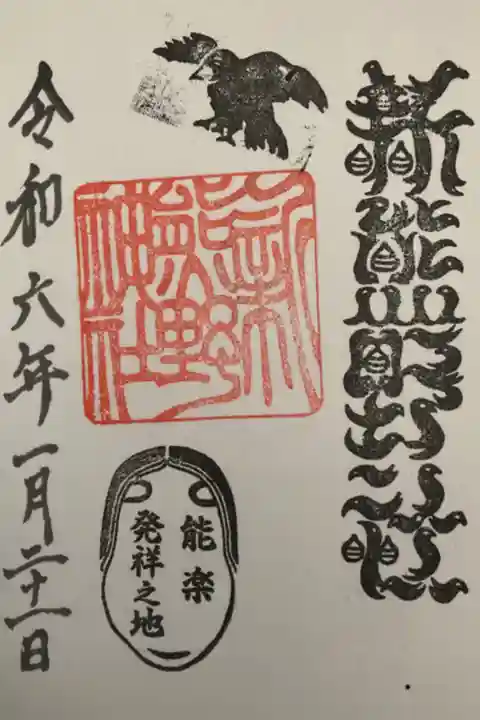 新熊野神社
新熊野神社
能楽
発祥之地
令和六年一月二十一日